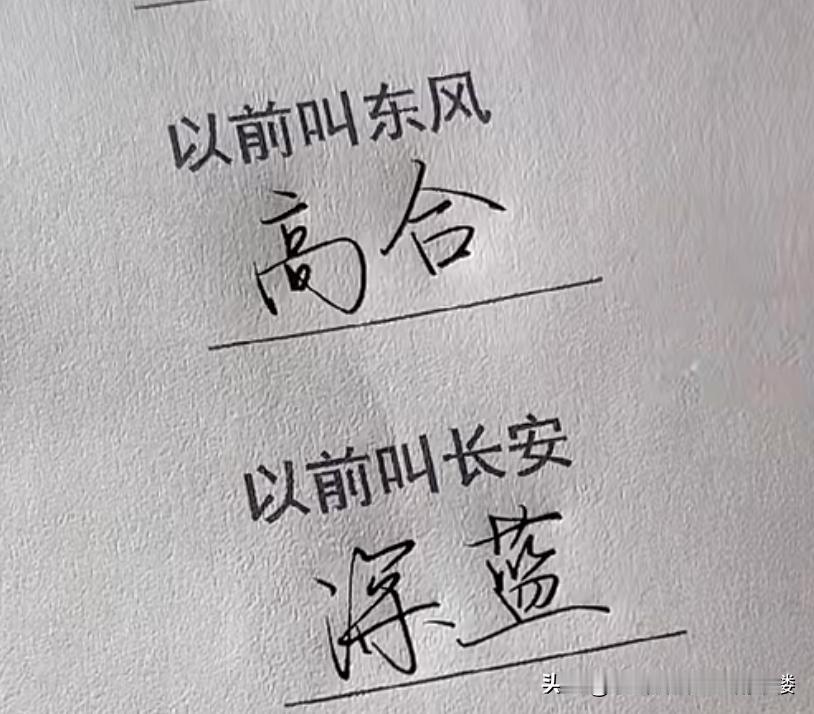 以前叫东风
高合
以前叫长安
深蓝
头
娄